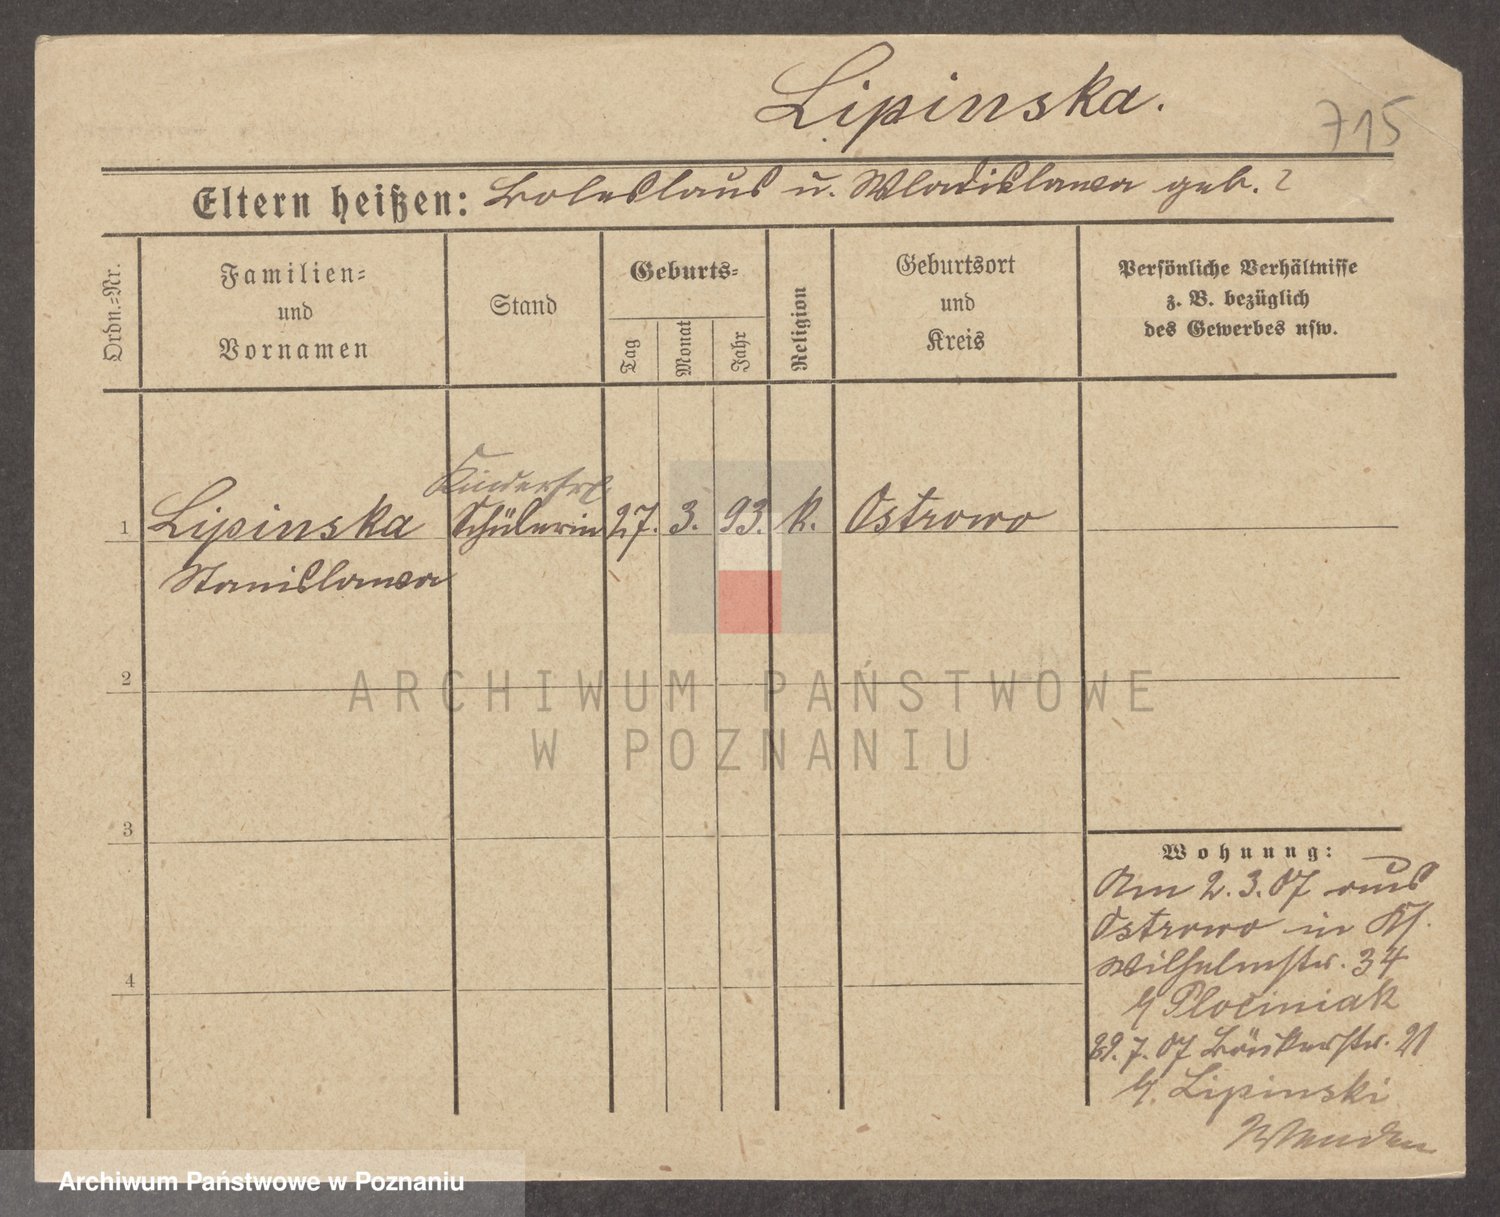 Lipinska.
715
Eltern heißen: Boleslaus u. Wladislawa geb. ?
Ordn.-Nr.
Familien-
und
Vornamen
Stand
Geburts-
Tag
Monat
Jahr
Religion
Geburtsort
und
Kreis
Persönliche Verhältnisse
z. B. bezüglich
des Gewerbes usw.
Kinderfrl.
1 Lipinska Schülerin 27. 3. 93. k. Ostrowo
Stanislawa
2
3
4
Wohnung:
Am 2.3.07 aus
Ostrowo in
Wilhelmstr. 34
b/ Plociniak
29.7.07 Bäckerstr. 21
b/. Lipinski
Wenden
ARCHIWUM PAŃSTWOWE
W POZNANIU
Archiwum Państwowe w Poznaniu